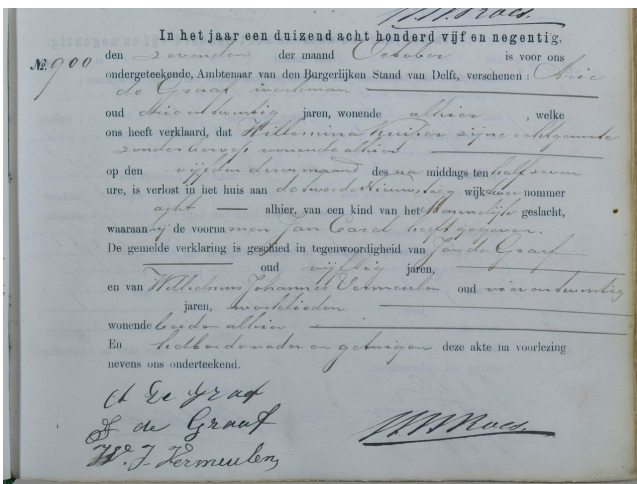 W.W. Roes.
In het jaar een duizend acht honderd vijf en negentig,
No. 900 den zevenden der maand October is voor ons
ondergeteekende, Ambtenaar van den Burgerlijken Stand van Delft, verschenen: Arie
de Graaf, werkman
oud drieentwintig jaren, wonende alhier, welke
ons heeft verklaard, dat Willemina Kuiper zijne echtgenoote
zonder beroep wonende alhier
op den vijfden dezer maand des na middags ten half zeven
ure, is verlost in het huis aan de tweede Nieuwsteeg wijk nummer
acht alhier, van een kind van het Mannelijk geslacht,
waaraan hij de voornamen Jan Carel heeft gegeven.
De gemelde verklaring is geschied in tegenwoordigheid van Jan de Graaf
oud vijftig jaren,
en van Wilhelmus Johannes Vermeulen oud vierentwintig
jaren, werklieden
wonende beiden alhier
En hebben de vader en getuigen deze akte na voorlezing
nevens ons onderteekend.
A de Graaf
J de Graaf
W. J. Vermeulen
W.W. Roes.